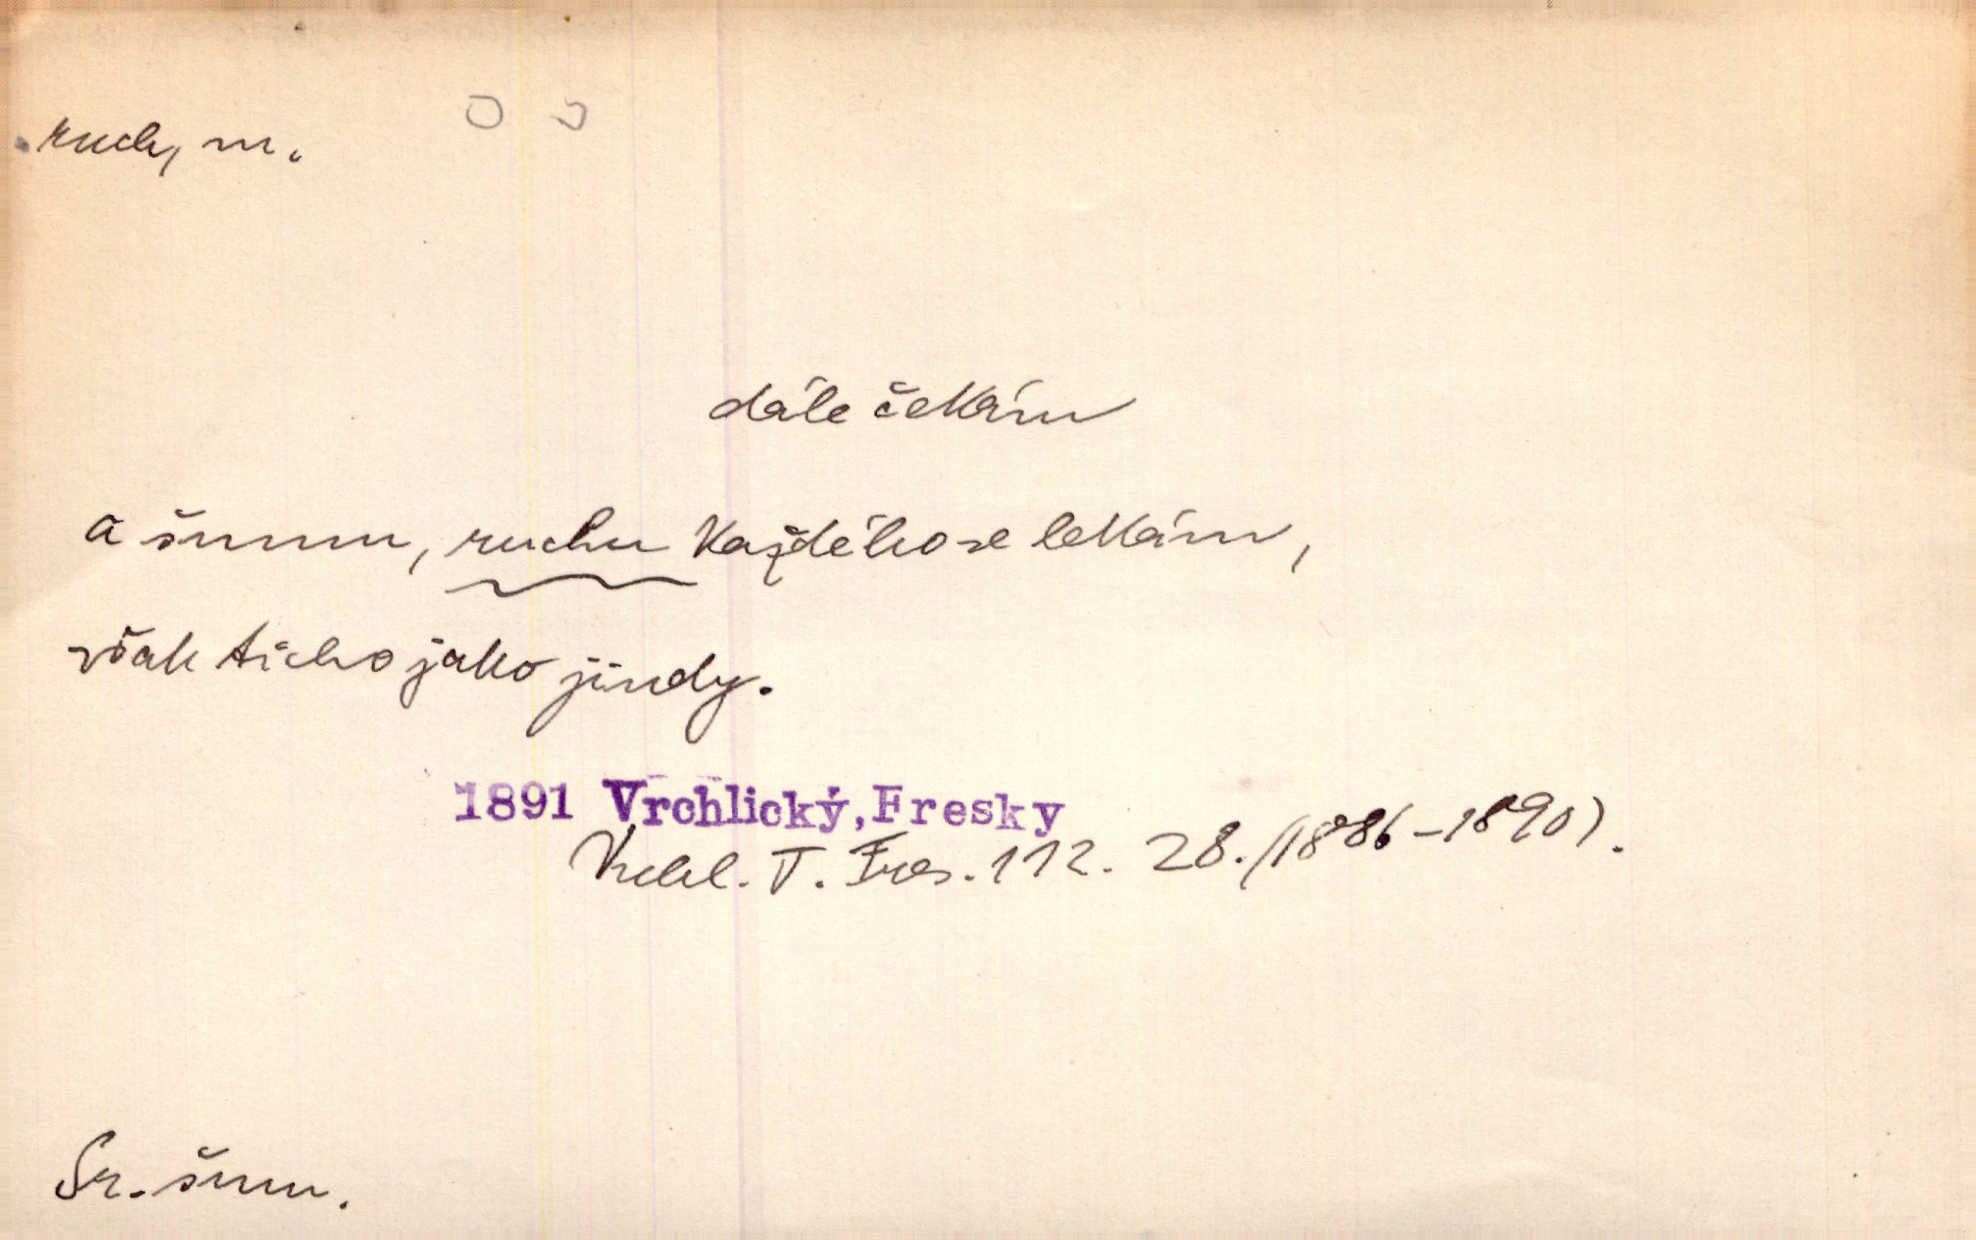 ruch, m.
dále čekám
a šumu, ruchu každého se lekám,
však ticho jako jindy.
1891 Vrchlický, Fresky
Vrchl. T. Fres. 112. 28. (1886–1890).
Sr. šum.